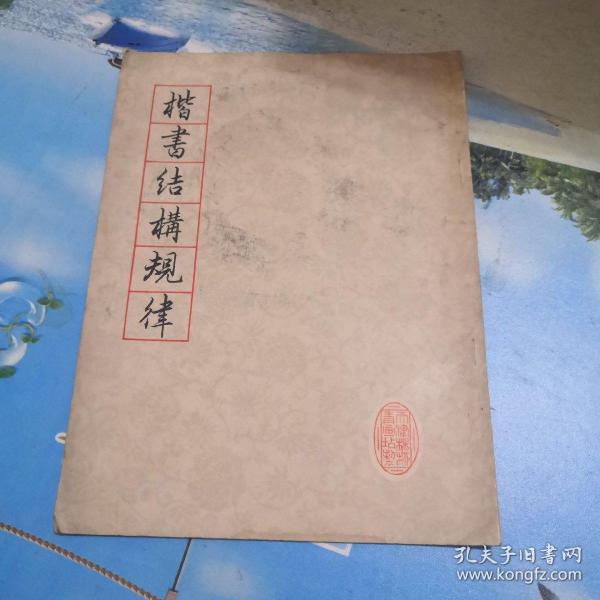 楷書结構規律
孔夫子旧書网
www.kongfz.com